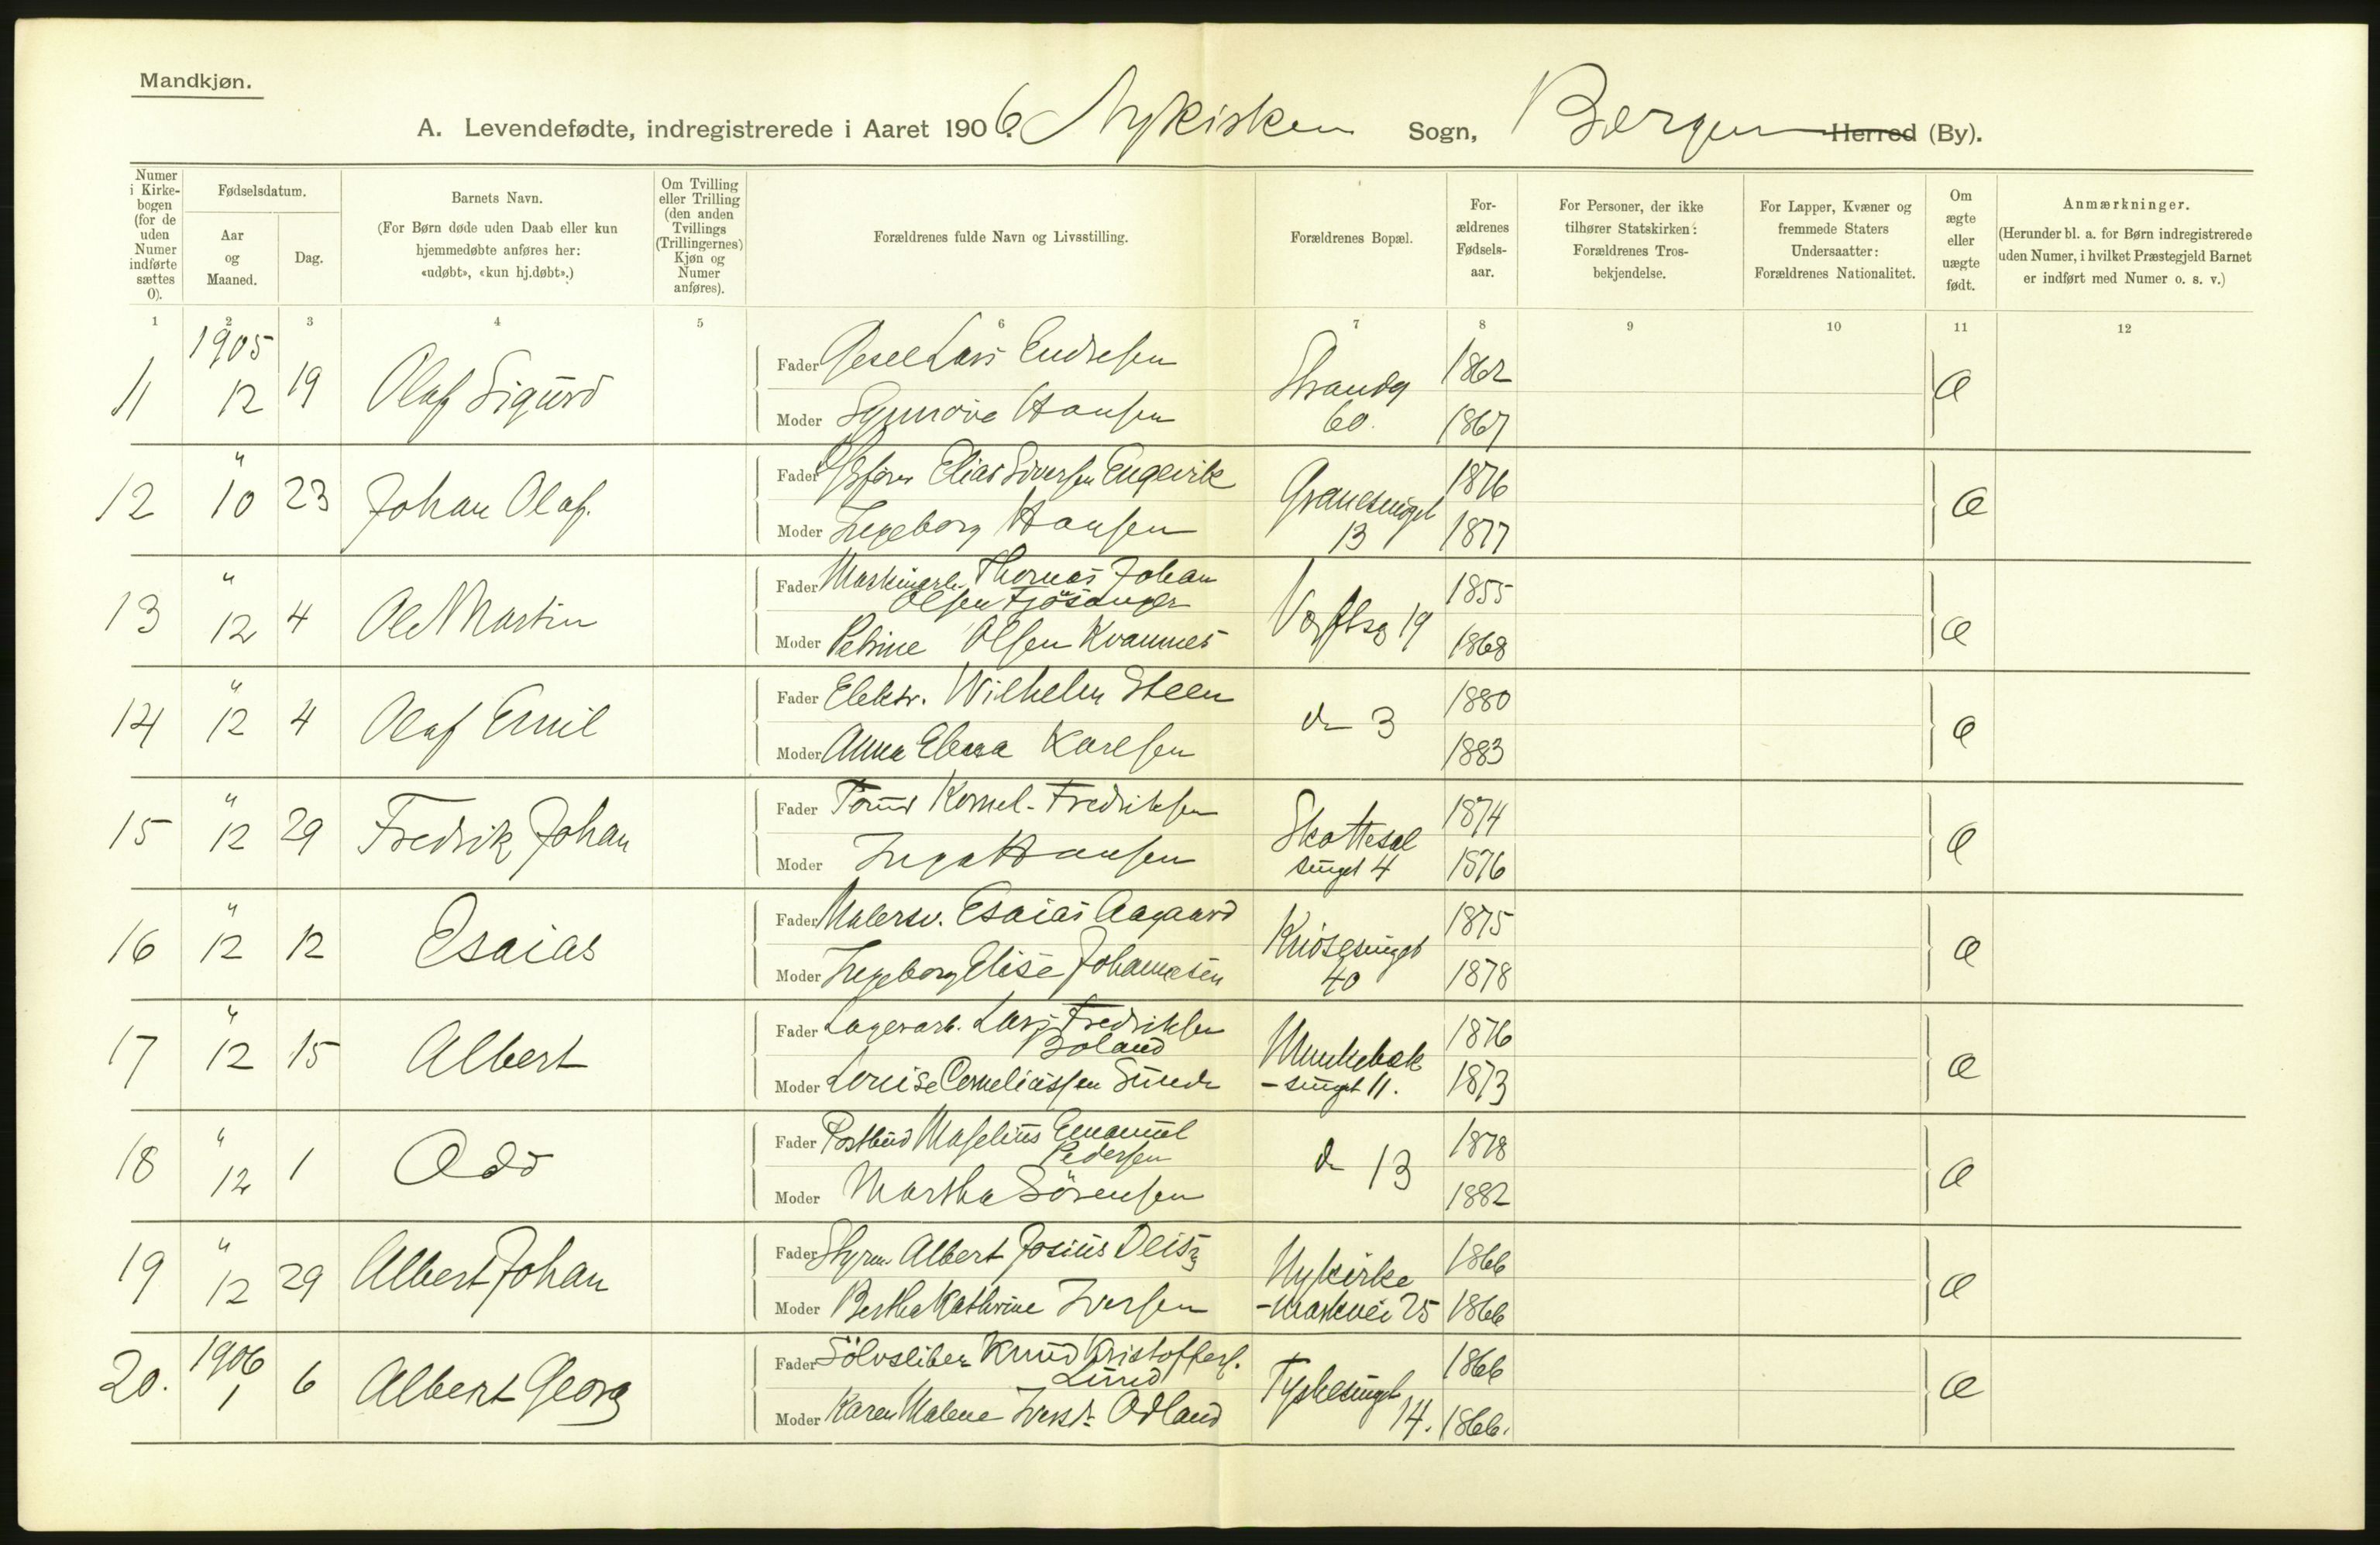 Mandkjøn.
A. Levendefødte, indregistrerede i Aaret 1906. Nykirken Sogn, Bergen Herred (By).
Numer i Kirke-bogen (for de uden Numer indførte sættes 0).
Fødselsdatum.
Aar og Maaned.
Dag.
Barnets Navn.
(For Børn døde uden Daab eller kun hjemmedøbte anføres her: «udøbt», «kun hj.døbt».)
Om Tvilling eller Trilling (den anden Tvillings (Trillingernes) Kjøn og Numer anføres).
Forældrenes fulde Navn og Livsstilling.
Forældrenes Bopæl.
For-ældrenes Fødsels-aar.
For Personer, der ikke tilhører Statskirken: Forældrenes Tros-bekjendelse.
For Lapper, Kvæner og fremmede Staters Undersaatter: Forældrenes Nationalitet.
Om ægte eller uægte født.
Anmærkninger.
(Herunder bl. a. for Børn indregistrerede uden Numer, i hvilket Præstegjeld Barnet er indført med Numer o. s. v.)
1 2 3 4 5 6 7 8 9 10 11 12
11 1905 12 19 Olaf Sigurd
Fader Lars Endresen
Moder Synnøve Hansen
Strandg 60.
1862
1867
Æ
12 " 10 23 Johan Olaf.
Fader Elias Siversen Engevik
Moder Ingeborg Hansen
13
1876
1877
Æ
13 " 12 4 Ole Martin
Fader Maskinarb. Thomas Johan
Olsen Fjösanger
Moder Petrine Olsen Kvamnes
19
1855
1868
Æ
14 " 12 4 Olaf Emil
Fader Elektr. Wilhelm Steen
Moder Anna Karlsen
do 3
1880
1883
Æ
15 " 12 29 Fredrik Johan
Fader Kornel. Fredriksen
Moder Inga Hansen
Skottesal
smuget 4
1874
1876
Æ
16 " 12 12 Esaias
Fader Malersv. Esaias Aagaard
Moder Ingeborg Elise Johannesen
Knösesmuget
40
1875
1878
Æ
17 " 12 15 Albert
Fader Lagerarb. Lars Fredriksen
Boland
Moder Louise Corneliussen Sunde
Munkebæk
-smuget 11.
1876
1873
Æ
18 " 12 1 Odd
Fader Postbud Emanuel
Pedersen
Moder Martha Sörensen
do 13
1878
1882
Æ
19 " 12 29 Albert Johan
Fader Styrm. Albert Josius
Moder Bertha Kathrine Iversen
Nykirke
-markvei 25
1866
1866
Æ
20. 1906 1 6 Albert Georg
Fader Sölvsliber Knud Kristoffers.
Lund
Moder Karen Malene Iversd. Odland
Tyskesmuget
14.
1866
1866.
Æ